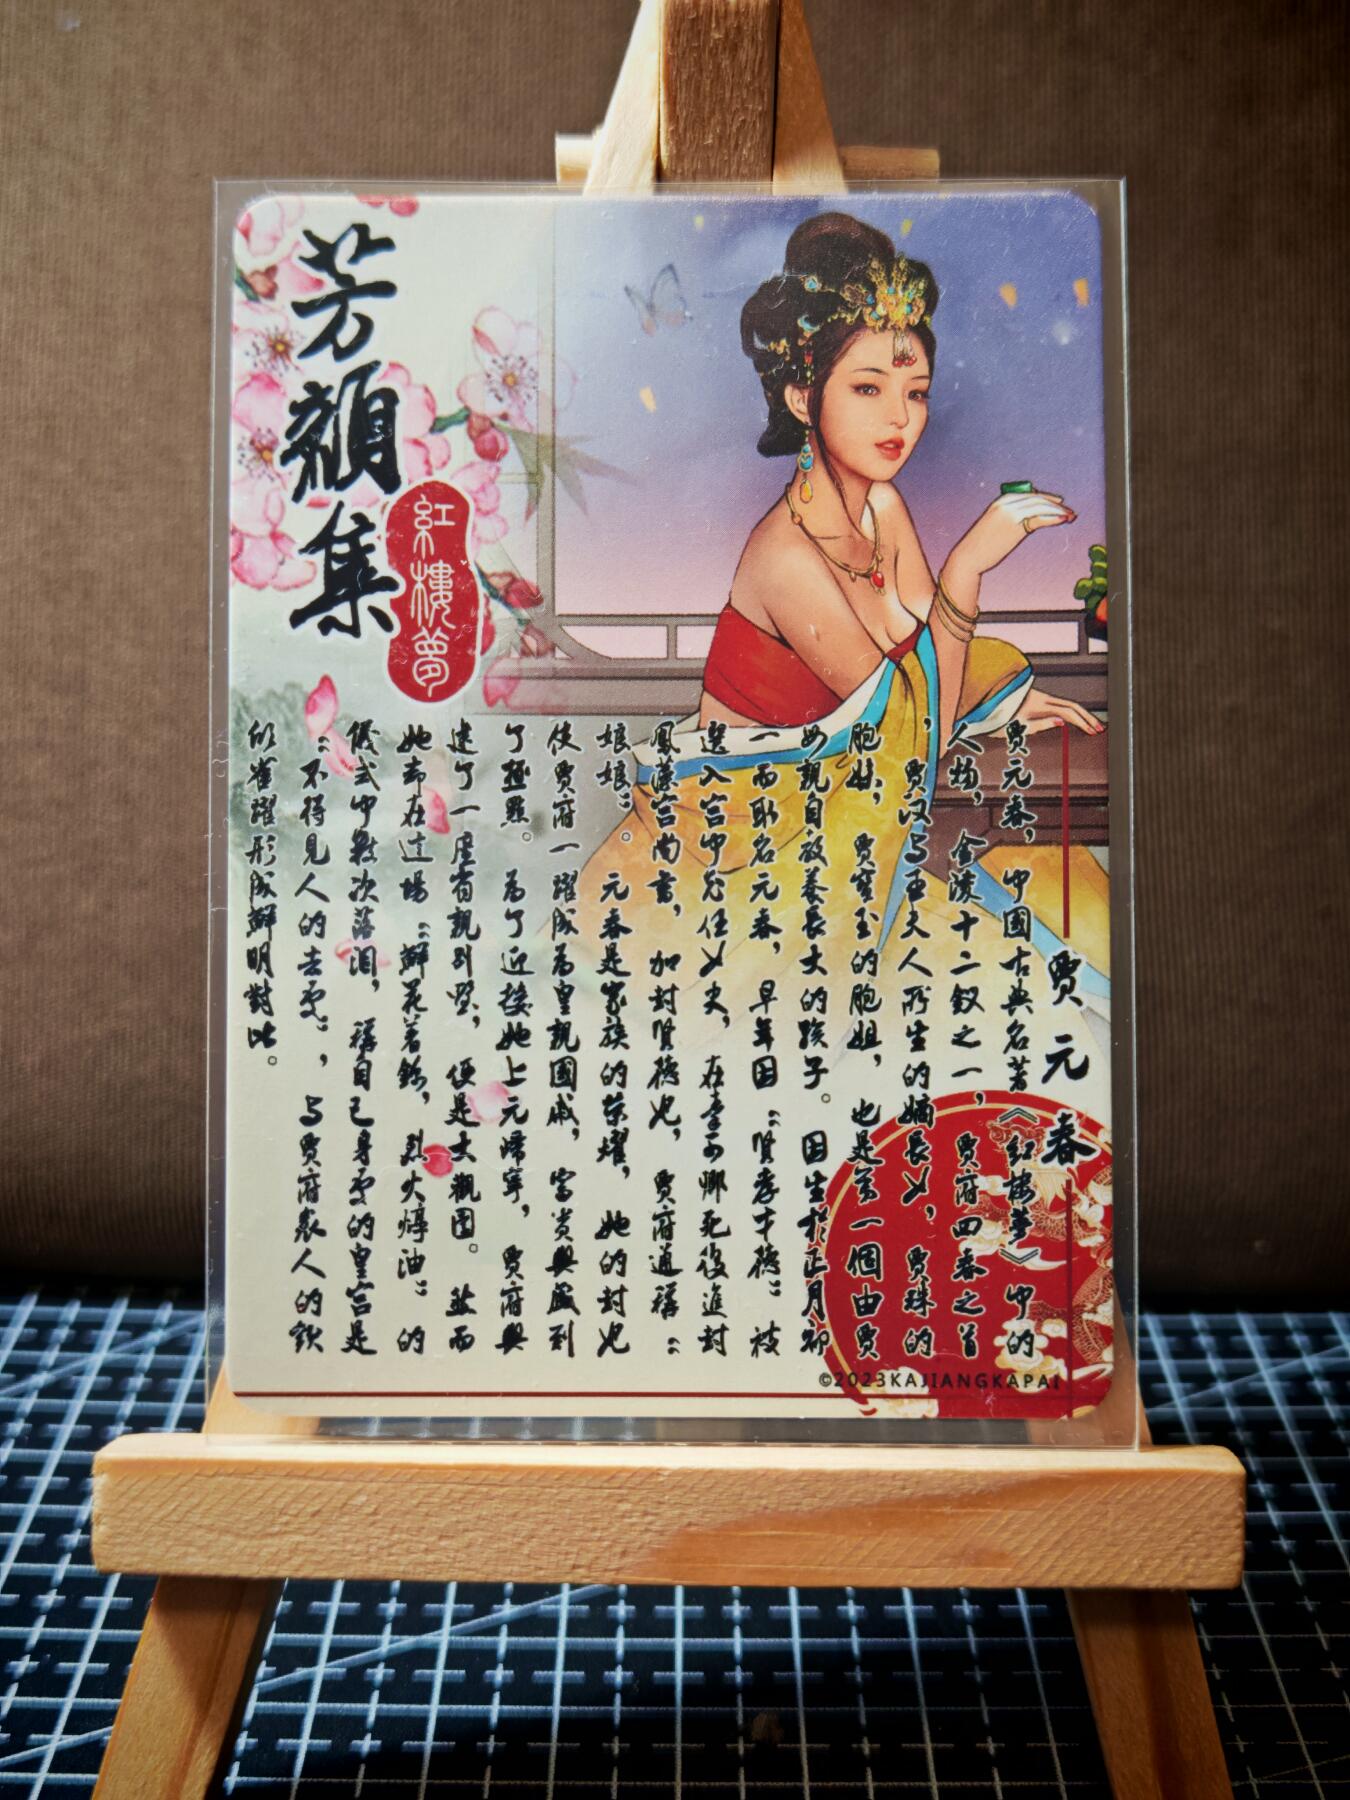 芳顏集
紅樓夢
賈元春
賈元春，中國古典名著《紅樓夢》中的
人物，金陵十二釵之一，賈府四春之首
，賈政与王夫人所生的嫡長女，賈珠的
胞妹，賈寶玉的胞姐，也是第一個由賈
母親自教養長大的孩子。因生於正月初
一而取名元春，早年因“賢孝才德”被
選入宮中充任女史，在秦可卿死後進封
鳳藻宮尚書，加封賢德妃，賈府通稱“
娘娘”。元春是家族的榮耀，她的封妃
使賈府一躍成為皇親國戚，富貴興盛到
了極點。為了迎接她上元歸寧，賈府興
建了一座省親別墅，便是大觀園。然而
她却在这場“鮮花着錦，烈火烹油”的
儀式中數次落淚，稱自己身處的皇宮是
“不得見人的去處”，与賈府衆人的歡
欣雀躍形成鮮明對比。
©2023KAJIANGKAPAI